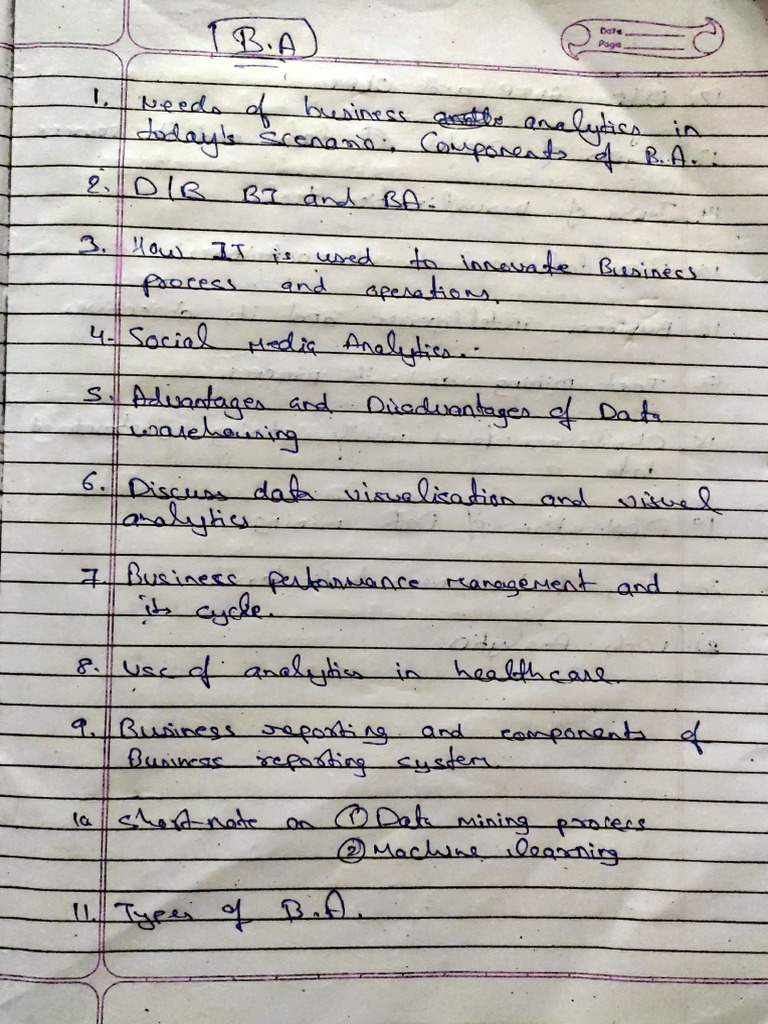 B.A
Date
Page
1. Needs of business analytics in
today's scenario. Components of B.A.
2. D/B BI and BA.
3. How IT is used to innovate Business
process and operations.
4- Social Media Analytics.
5. Advantages and Disadvantages of Data
warehousing
6. Discuss data visualisation and visual
analytics
7. Business performance management and
its cycle.
8. Use of analytics in healthcare.
9. Business reporting and components of
Business reporting system
10 Short-note on ① Data mining process
② Machine learning
11. Types of B.A.